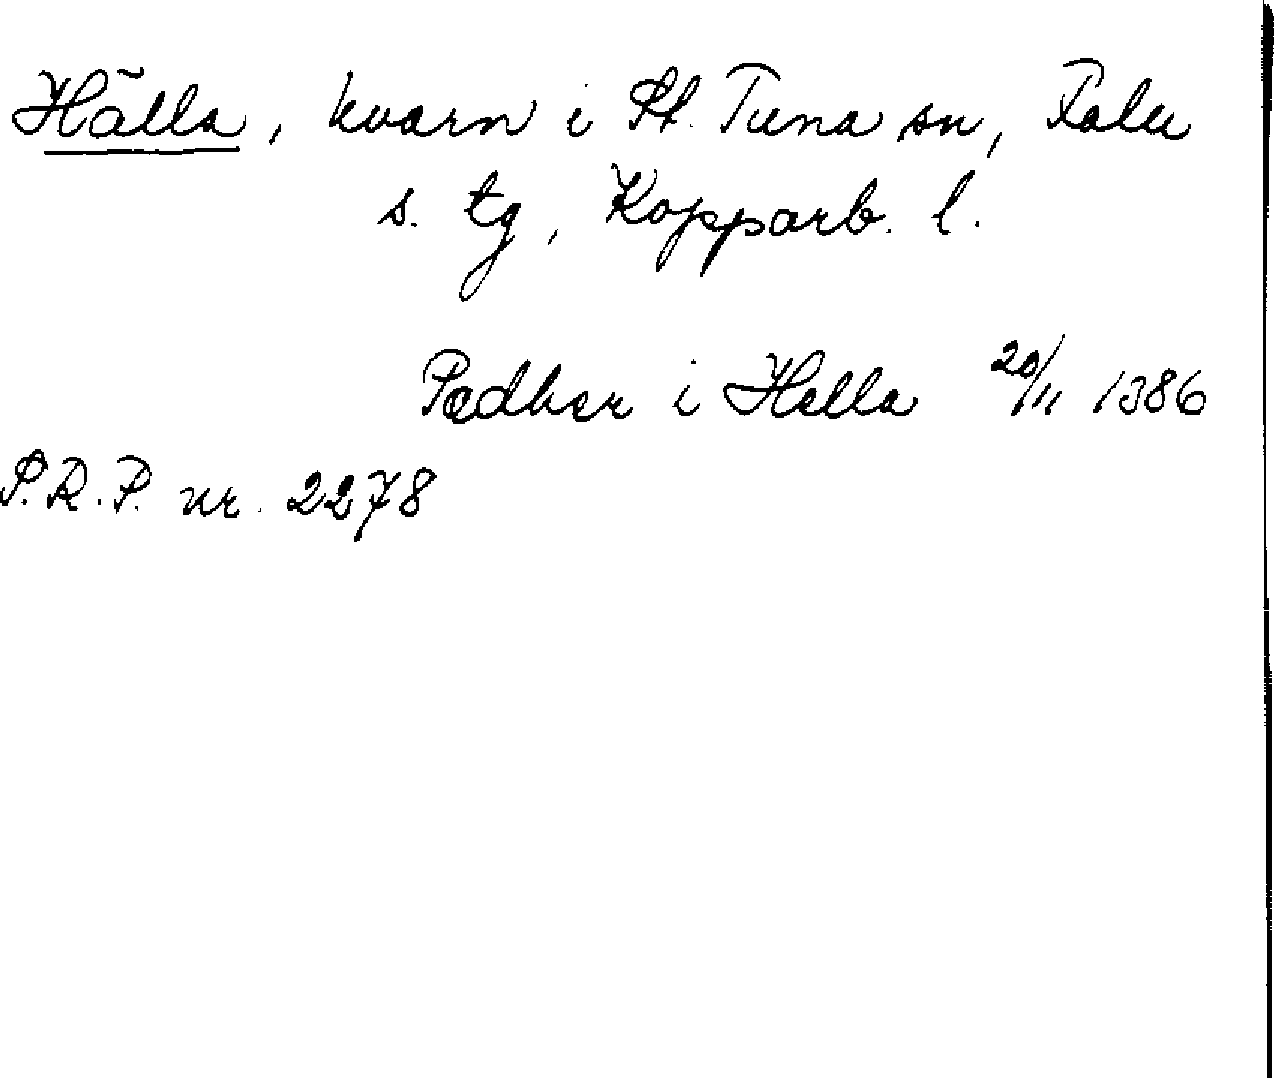 Hälla, kvarn i St. Tuna sn, Falu
s. tg, Kopparb. l.
Pædher i Hella 20/11 1386
S.R.P. nr. 2278